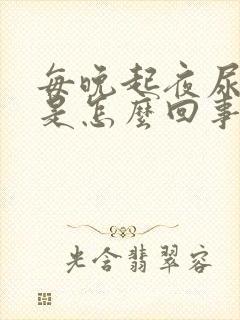 每晚起夜尿
是怎麼回事
光含翡翠容